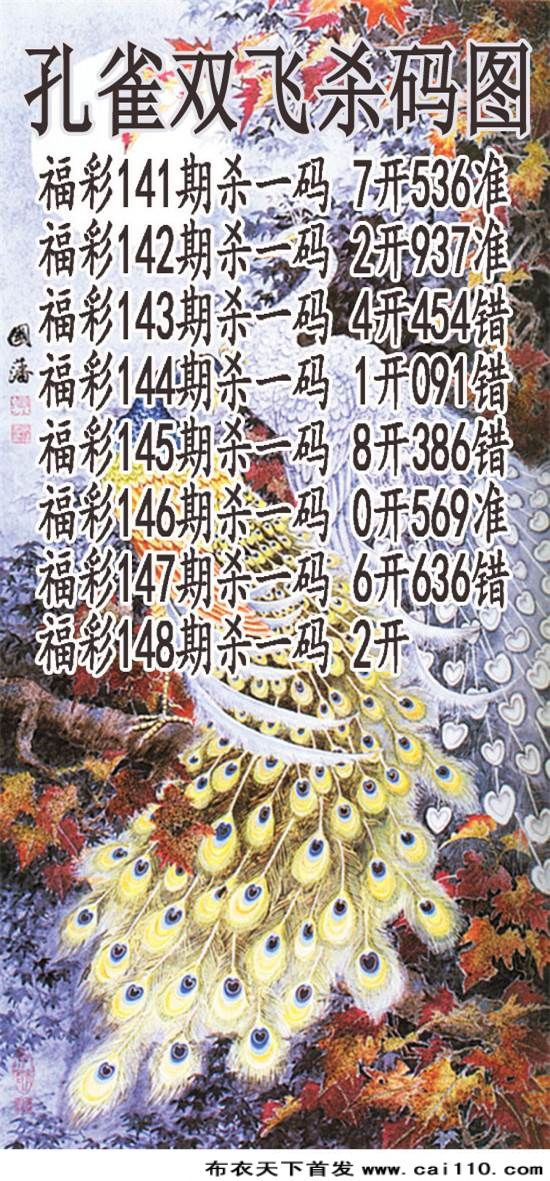 孔雀双飞杀码图
福彩141期杀一码 7开536准
福彩142期杀一码 2开937准
福彩143期杀一码 4开454错
福彩144期杀一码 1开091错
福彩145期杀一码 8开386错
福彩146期杀一码 0开569准
福彩147期杀一码 6开636错
福彩148期杀一码 2开
國藩
布衣天下首发 www.cai110.com